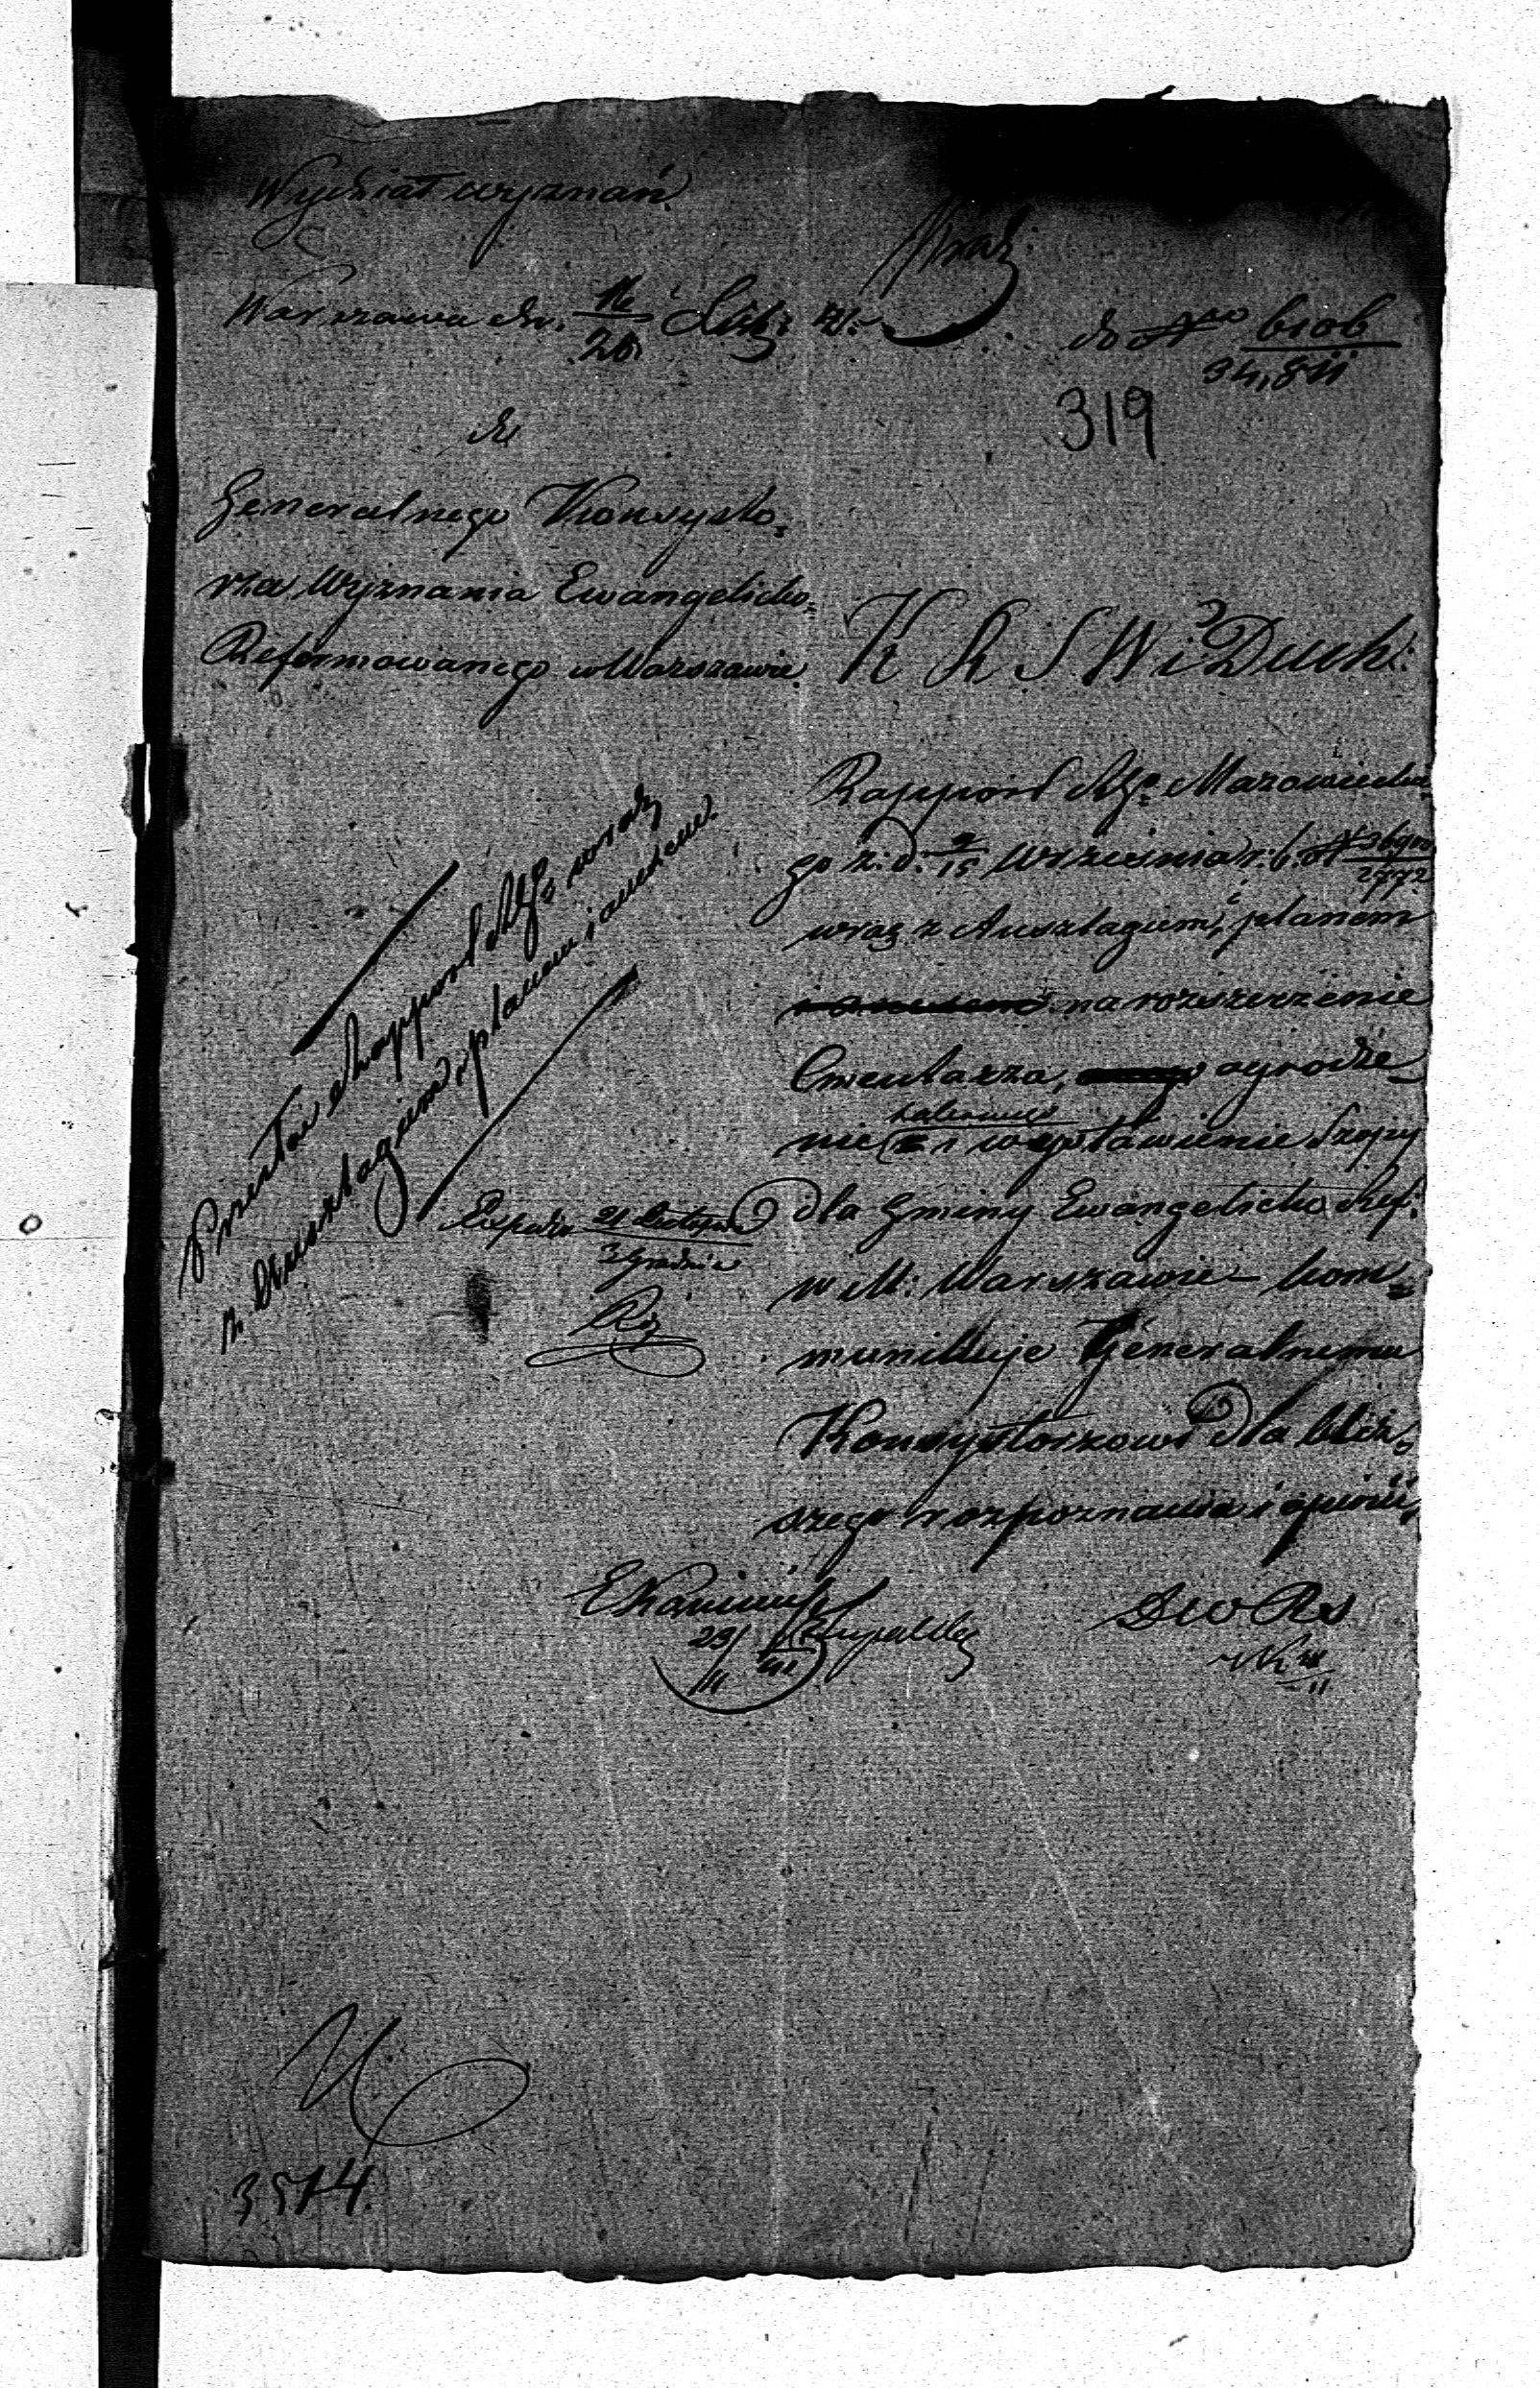 Wydział wyznań
Warszawa dn. 16/28 List: 41
do Nro 6106/34,811
319
do
Generalnego Konsysto=
rza Wyznania Ewangelicko=
Reformowanego w Warszawie.
K R S W i Duch:
Rapport RGo Mazowieckie
go z. d. 2/15 Września r. b. N
2772
wraz z Anszlagiem, i planem
na rozszerzenie
Cmentarza, ogrodze
nie i wystawienie Szopy
dla Gminy Ewangelicko Ref:
w M: Warszawie – kom=
munikuje Generalnemu
Konsystorzowi dla bliż=
szego rozpoznania i opinii,
Przesłać rapport RGo wraz
z Anszlagiem, planem i aneksem.
Exped. 21 Listopada
3 Grudnia
D W O R s
3514